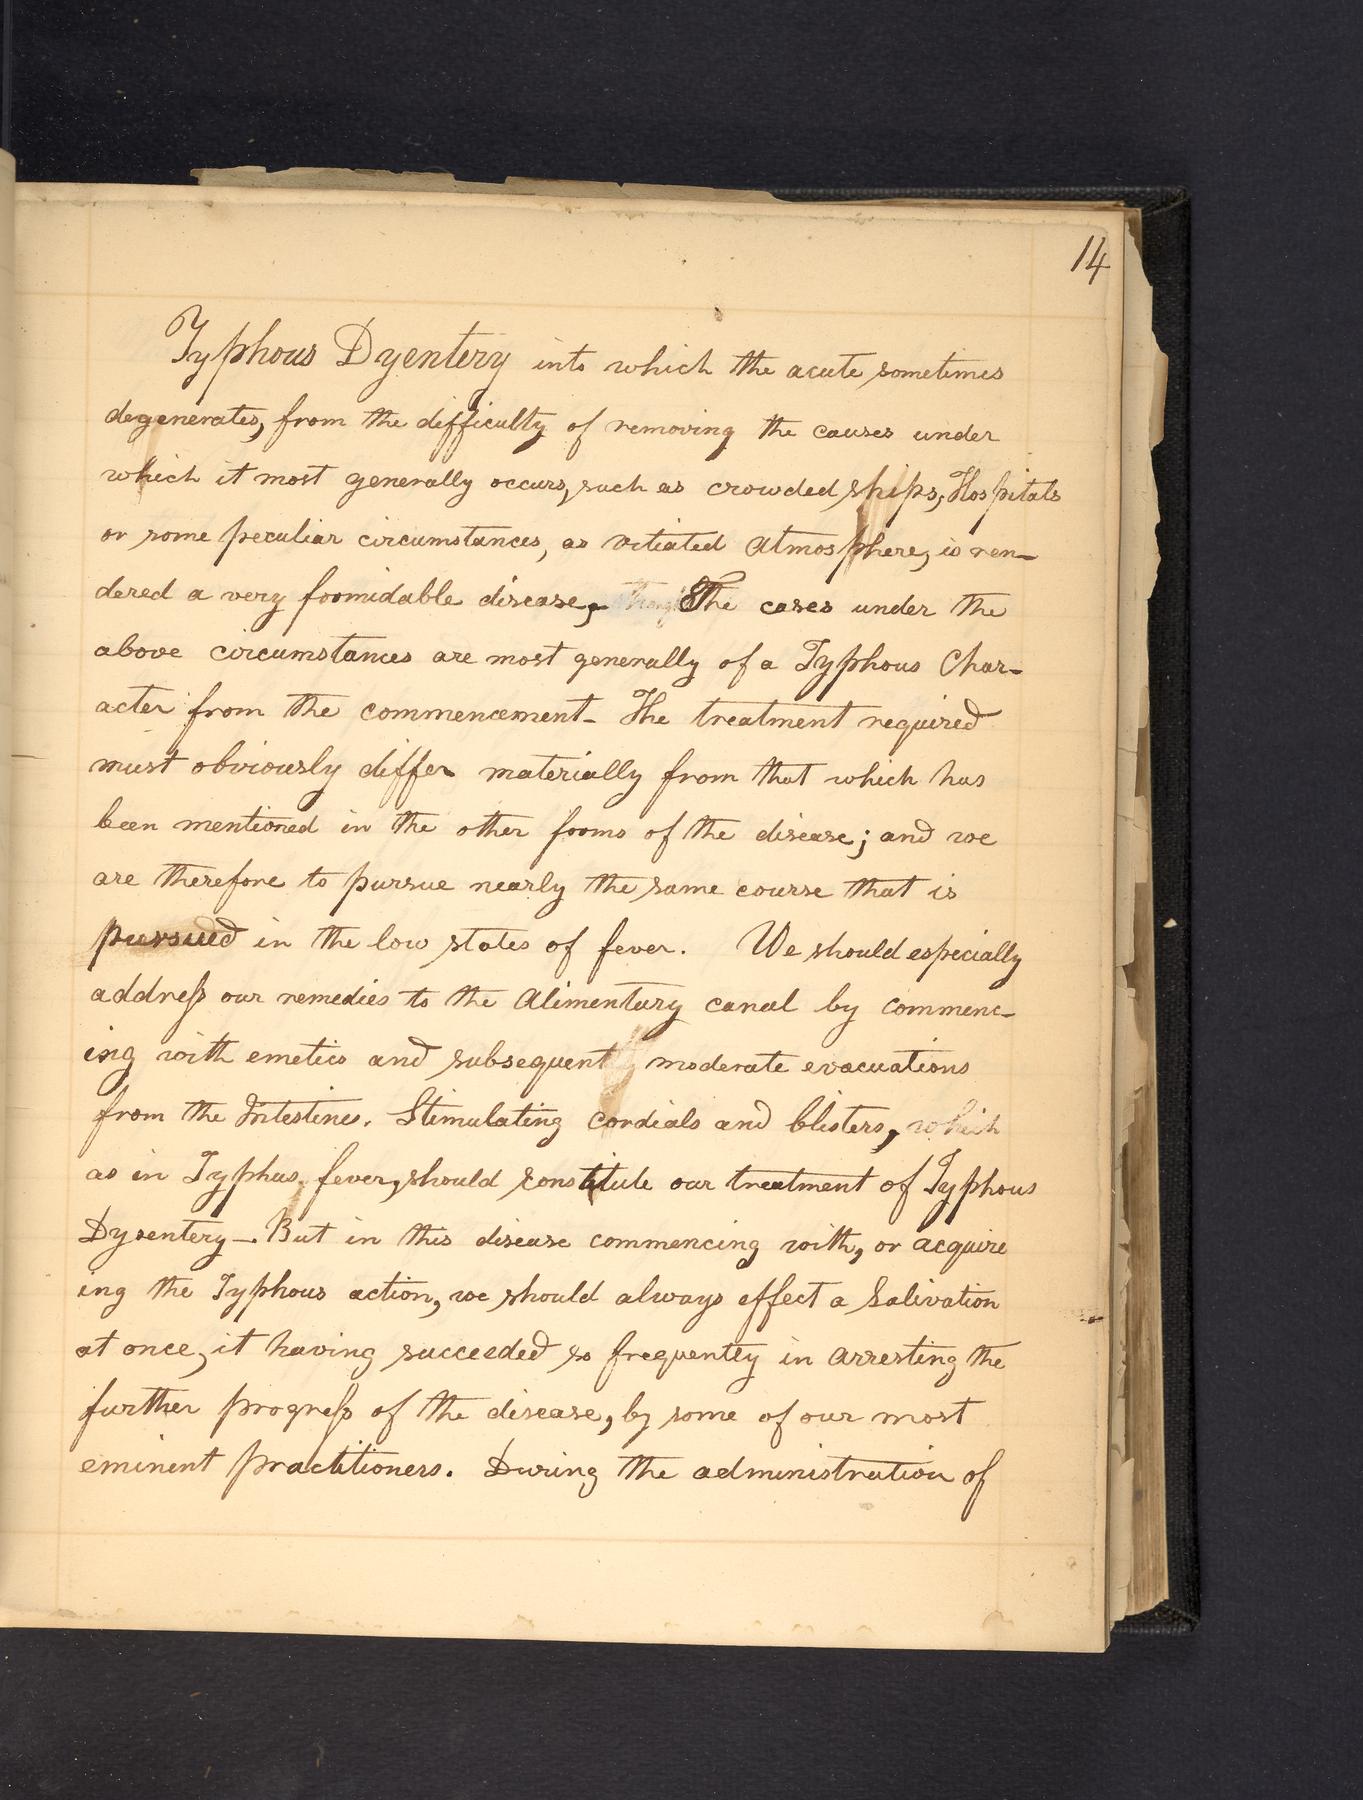 14
Typhous Dyentery into which the acute sometimes
degenerates, from the difficulty of removing the causes under
which it most generally occurs, such as crowded ships, Hospitals
or some peculiar circumstances, as vitiated atmosphere, is ren-
dered a very foomidable disease, The cases under the
above circumstances are most generally of a Typhous Char-
acter from the commencement - The treatment required
must obviously differ materially from that which has
been mentioned in the other fooms of the disease; and we
are therefore to pursue nearly the same course that is
pursued in the low states of fever. We should especially
addreſs our remedies to the alimentary canal by commenc-
ing with emetics and subsequent moderate evacuations
from the Intestines. Stimulating cordials and blisters, which
as in Typhus fever, should constitute our treatment of Typhous
Dysentery - But in this disease commencing with, or acquire
ing the Typhous action, we should always effect a Salivation
at once, it having succeeded so frequentey in arresting the
further progreſs of the disease, by some of our most
eminent practitioners. During the administration of